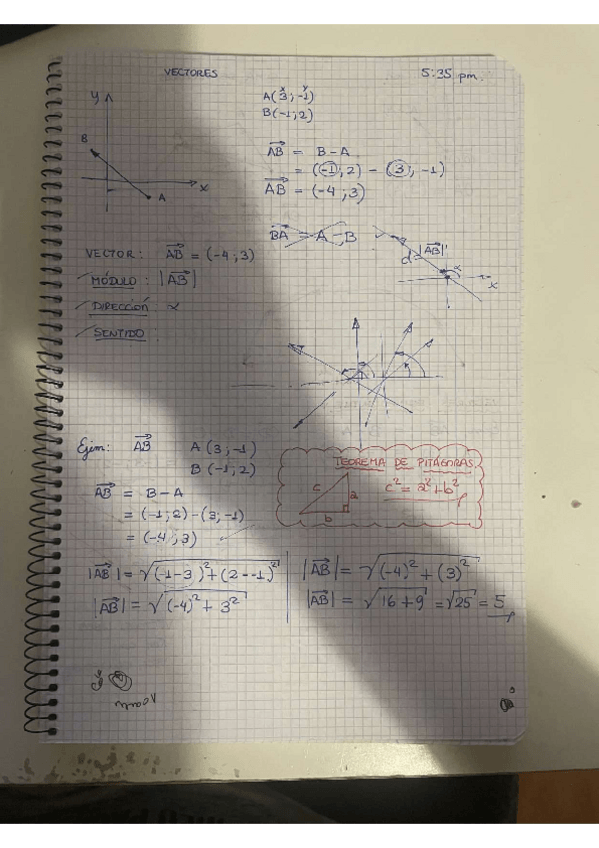 VECTORES
5:35 pm.
x y
A(3;-1)
B(-1;2)
y
B
x
A
AB = B-A
= (-1;2) - (3;-1)
AB = (-4;3)
BA = A-B
VECTOR: AB = (-4;3)
d=|AB|
α
x
MÓDULO: |AB|
DIRECCIÓN: α
SENTIDO:
Ejm: AB A(3;-1)
B(-1;2)
AB = B-A
= (-1;2)-(3;-1)
= (-4;3)
TEOREMA DE PITÁGORAS
c a b
c²=a²+b²
|AB| = √(-1-3)²+(2--1)²
|AB| = √(-4)²+3²
|AB| = √(-4)²+(3)²
|AB| = √16+9 = √25 = 5